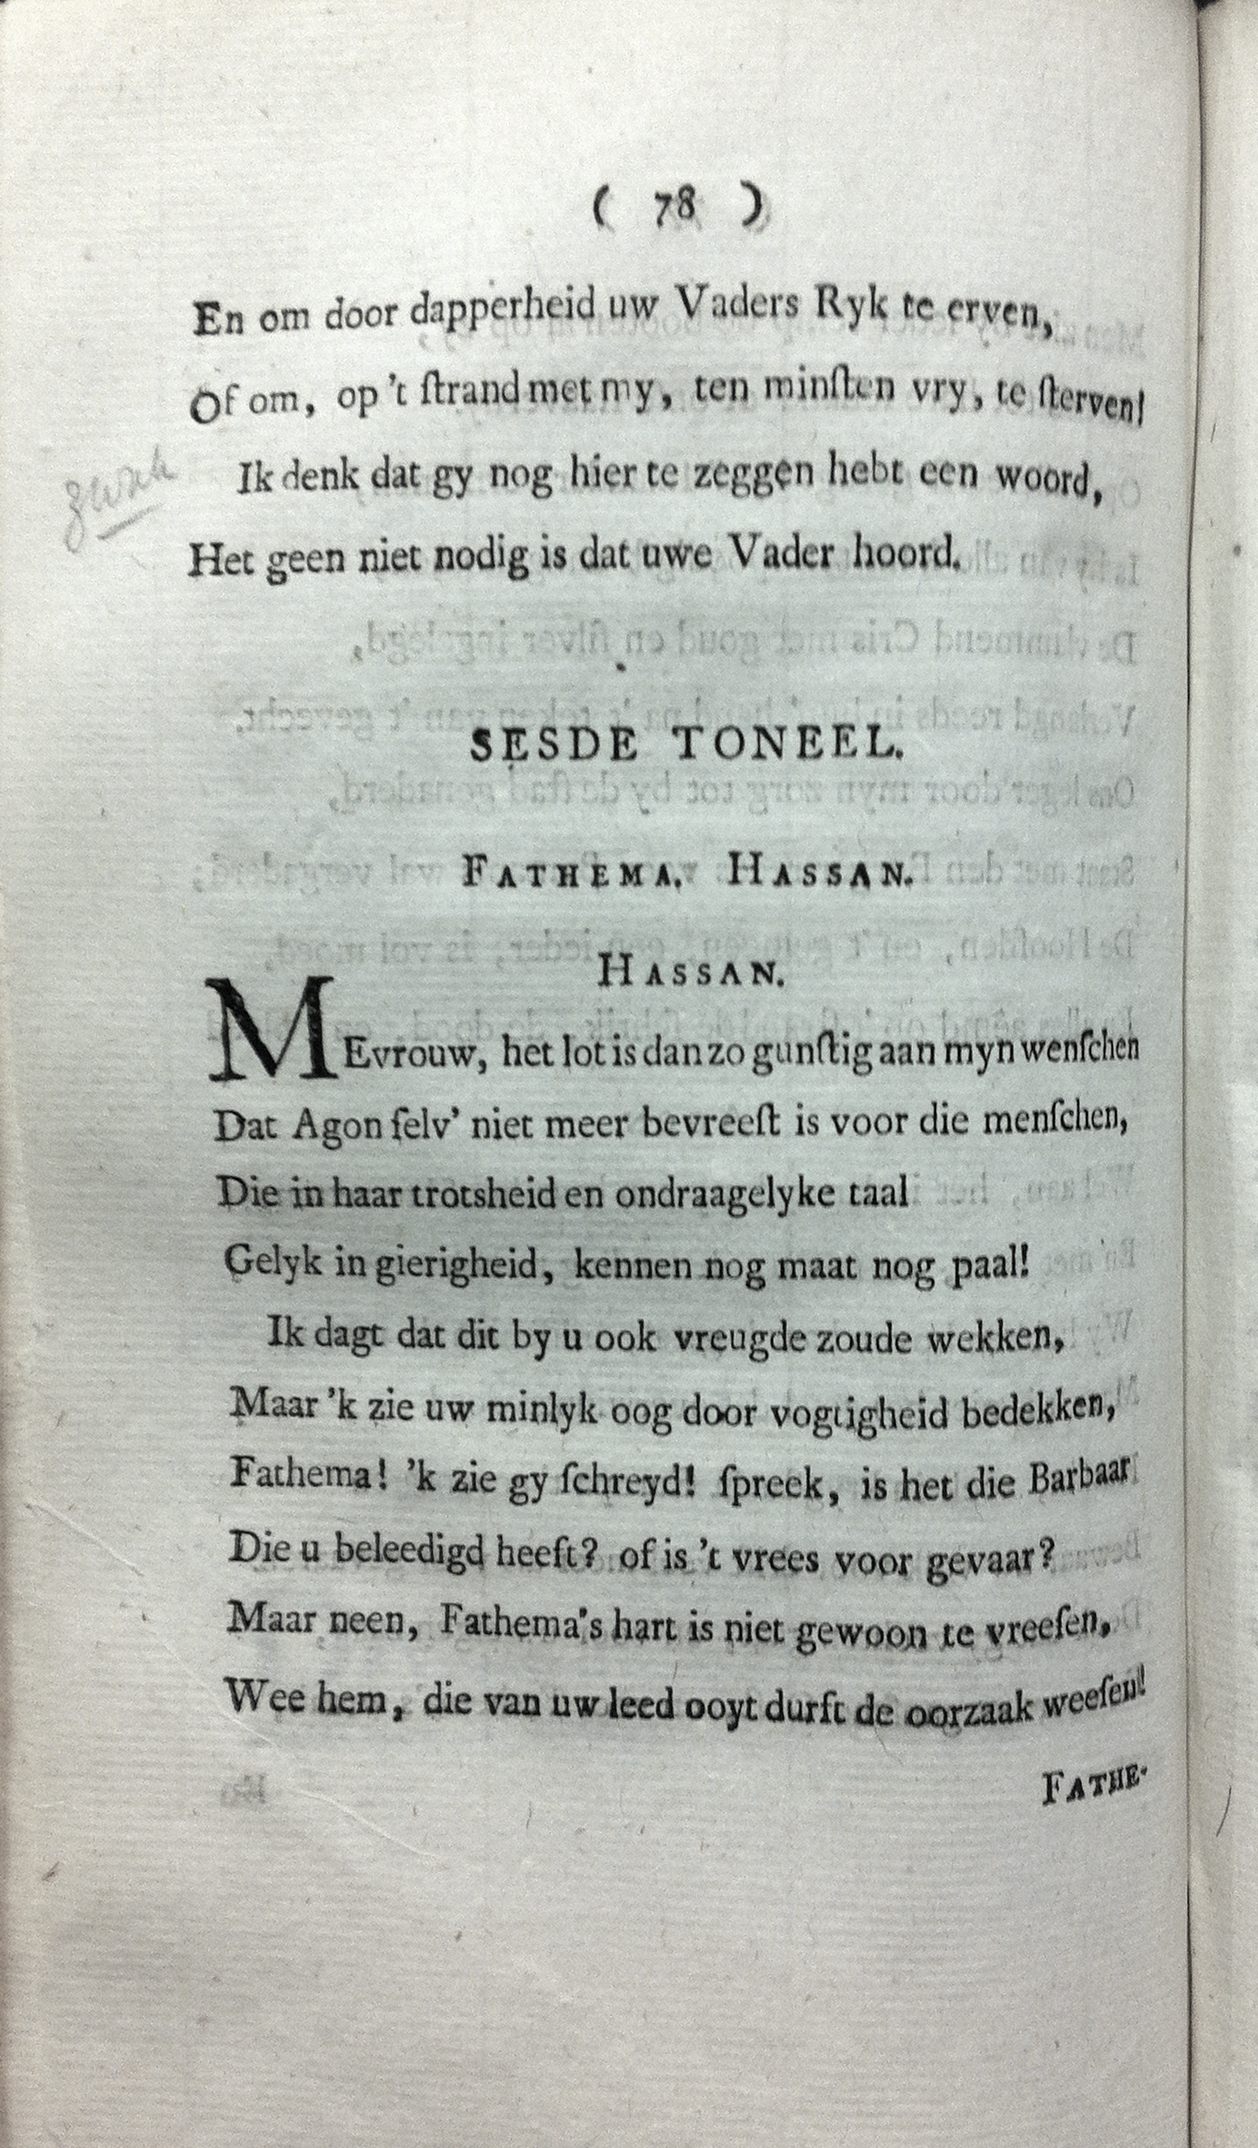 ( 78 )
En om door dapperheid uw Vaders Ryk te erven,
Of om, op 't ſtrand met my, ten minſten vry, te ſterven!
zwak
Ik denk dat gy nog hier te zeggen hebt een woord,
Het geen niet nodig is dat uwe Vader hoord.
SESDE TONEEL.
FATHEMA. HASSAN.
HASSAN.
MEvrouw, het lot is dan zo gunſtig aan myn wenſchen
Dat Agon ſelv' niet meer bevreeſt is voor die menſchen,
Die in haar trotsheid en ondraagelyke taal
Gelyk in gierigheid, kennen nog maat nog paal!
Ik dagt dat dit by u ook vreugde zoude wekken,
Maar 'k zie uw minlyk oog door vogtigheid bedekken,
Fathema! 'k zie gy ſchreyd! ſpreek, is het die Barbaar
Die u beleedigd heeft? of is 't vrees voor gevaar?
Maar neen, Fathema's hart is niet gewoon te vreeſen,
Wee hem, die van uw leed ooyt durft de oorzaak weeſen!
FATHE-